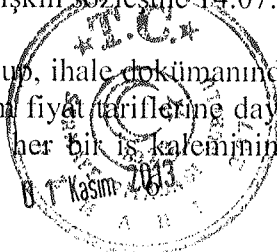 işkin sözleşme 14.07.
T.C.
up, ihale dokümanınd
fiyat tariflerine day
her bir iş kaleminin
0 1 Kasım 2013